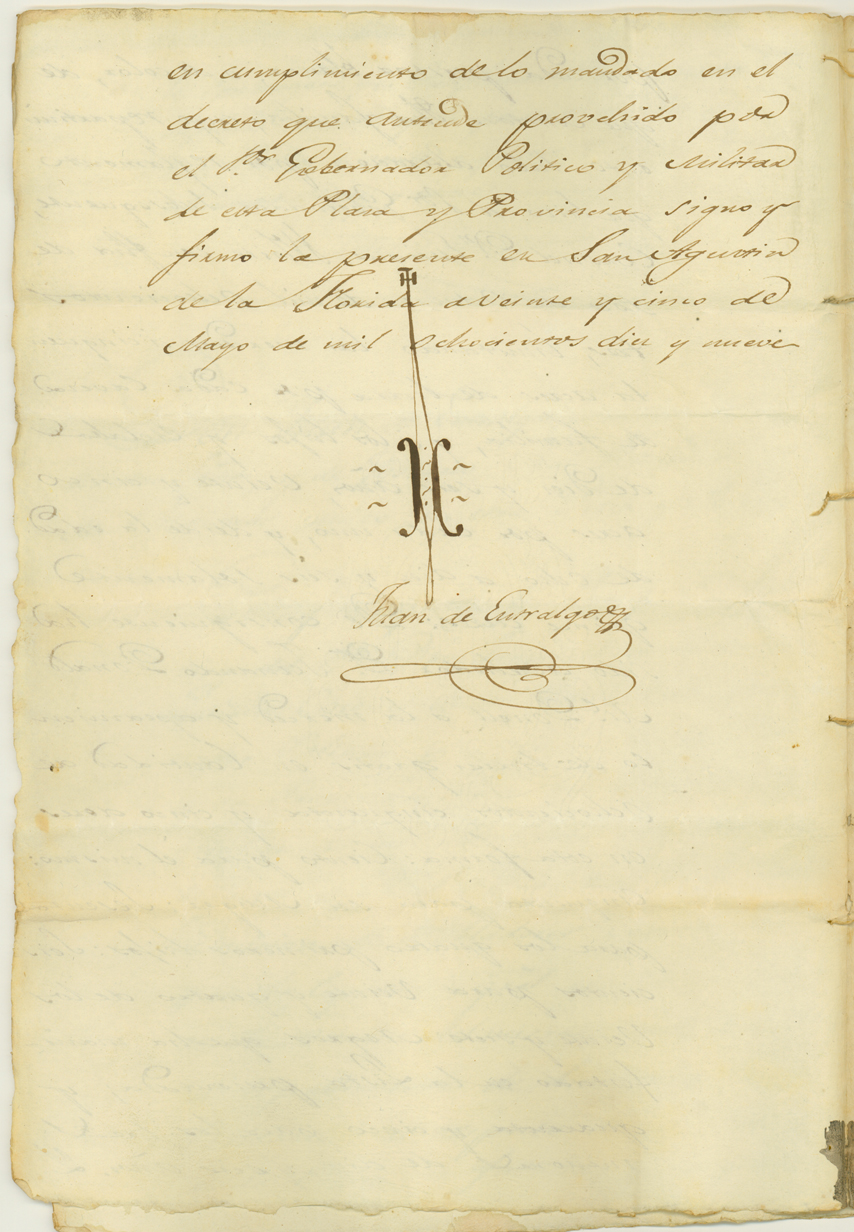 en cumplimiento de lo mandado en el
decreto que antecede provehido por
el Sor. Gobernador Politico y Militar
de esta Plasa y Provincia signo y
firmo la presente en San Agustin
de la Florida a veinte y cinco de
Mayo de mil ochocientos diez y nueve
Juan de Entralgo